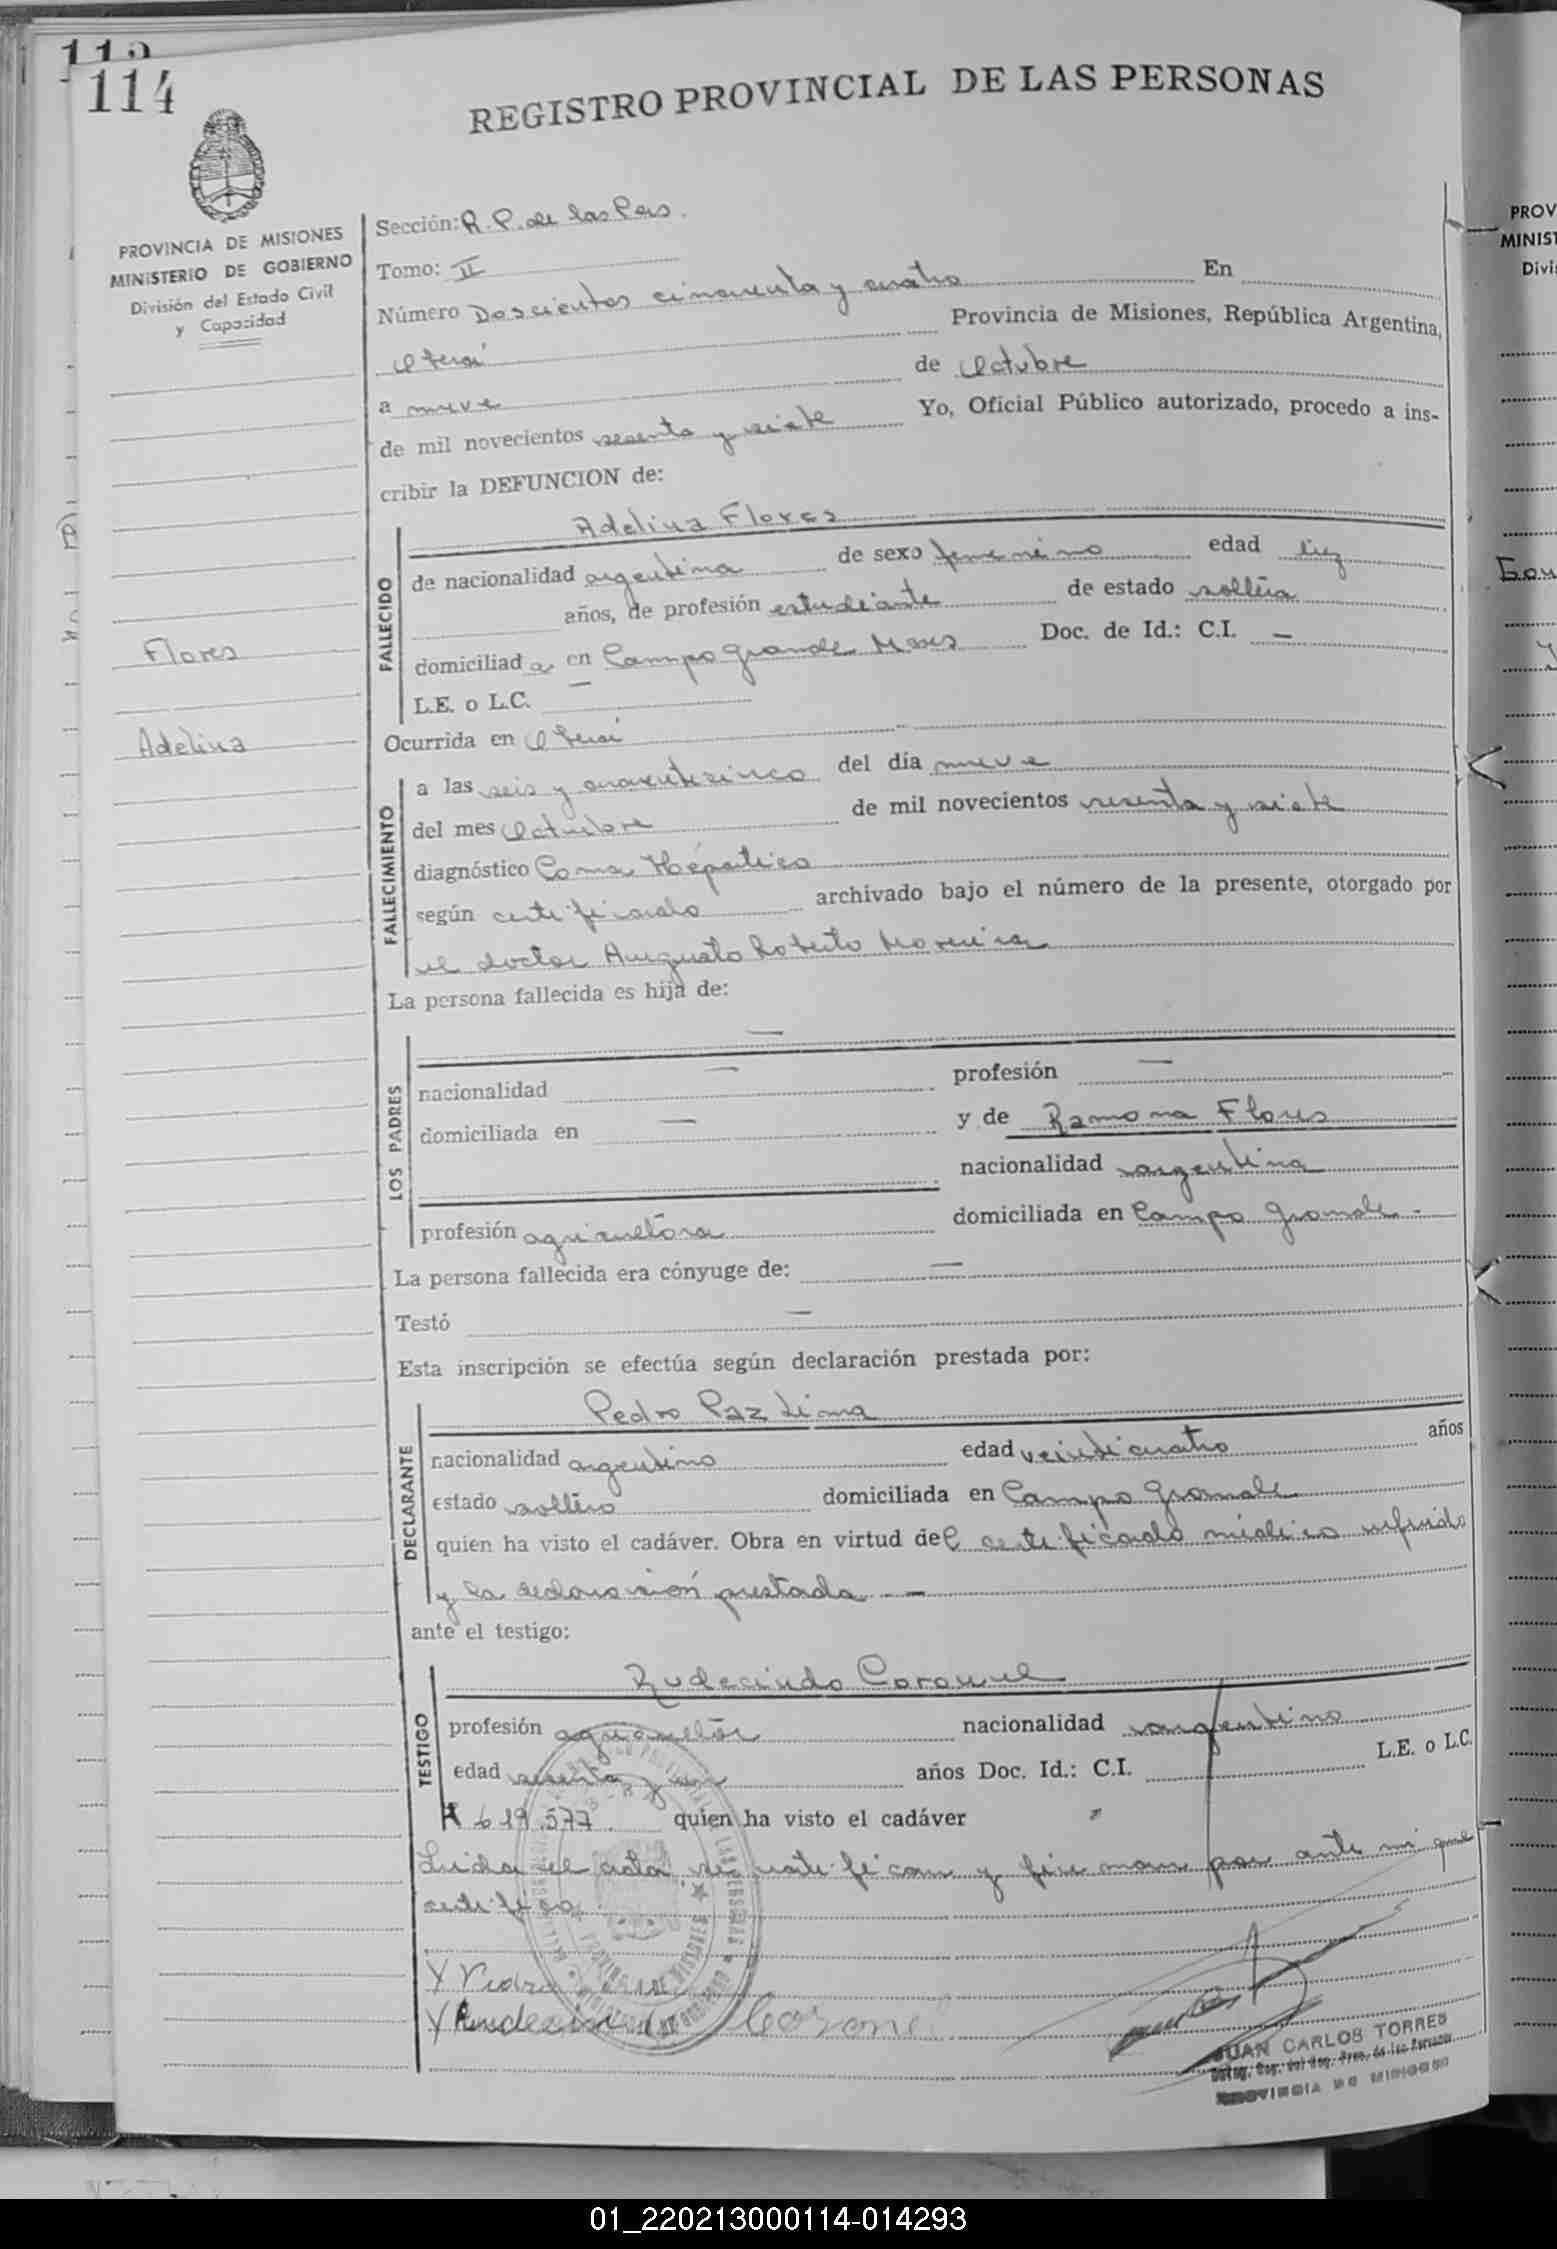 114
REGISTRO PROVINCIAL DE LAS PERSONAS
PROVINCIA DE MISIONES
MINISTERIO DE GOBIERNO
División del Estado Civil
y Capacidad
Flores
Adelina
Sección: R. P. de las Pers.
Tomo: II
Número Doscientos cincuenta y cuatro En
Oberá Provincia de Misiones, República Argentina,
a nueve de Octubre
de mil novecientos sesenta y siete Yo, Oficial Público autorizado, procedo a ins-
cribir la DEFUNCION de:
FALLECIDO
Adelina Flores
de nacionalidad argentina de sexo femenino edad diez
años, de profesión estudiante de estado soltera
domiciliada en Campo Grande Mnes Doc. de Id.: C.I. —
L.E. o L.C. —
Ocurrida en Oberá
FALLECIMIENTO
a las seis y cuarenticinco del día nueve
del mes Octubre de mil novecientos sesenta y siete
diagnóstico Coma Hepático
según certificado archivado bajo el número de la presente, otorgado por
el doctor Augusto Roberto Moreira
La persona fallecida es hija de:
LOS PADRES
—
nacionalidad — profesión —
domiciliada en — y de Ramona Flores
nacionalidad argentina
profesión agricultora domiciliada en Campo Grande -
La persona fallecida era cónyuge de: —
Testó —
Esta inscripción se efectúa según declaración prestada por:
DECLARANTE
Pedro Paz Lima
nacionalidad argentino edad veinticuatro años
estado soltero domiciliada en Campo Grande
quien ha visto el cadáver. Obra en virtud del certificado médico referido
y la declaración prestada - —
ante el testigo:
TESTIGO
Rudecindo Coronel
profesión agricultor nacionalidad argentino
edad sesenta y un años Doc. Id.: C.I. L.E. o L.C.
619.577. quien ha visto el cadáver
Leída el acta, se ratifican y firman por ante mi que
certifico.
Coronel
JUAN CARLOS TORRES
PROVINCIA DE MISIONES
PROV
MINIST
Divi
01_220213000114-014293